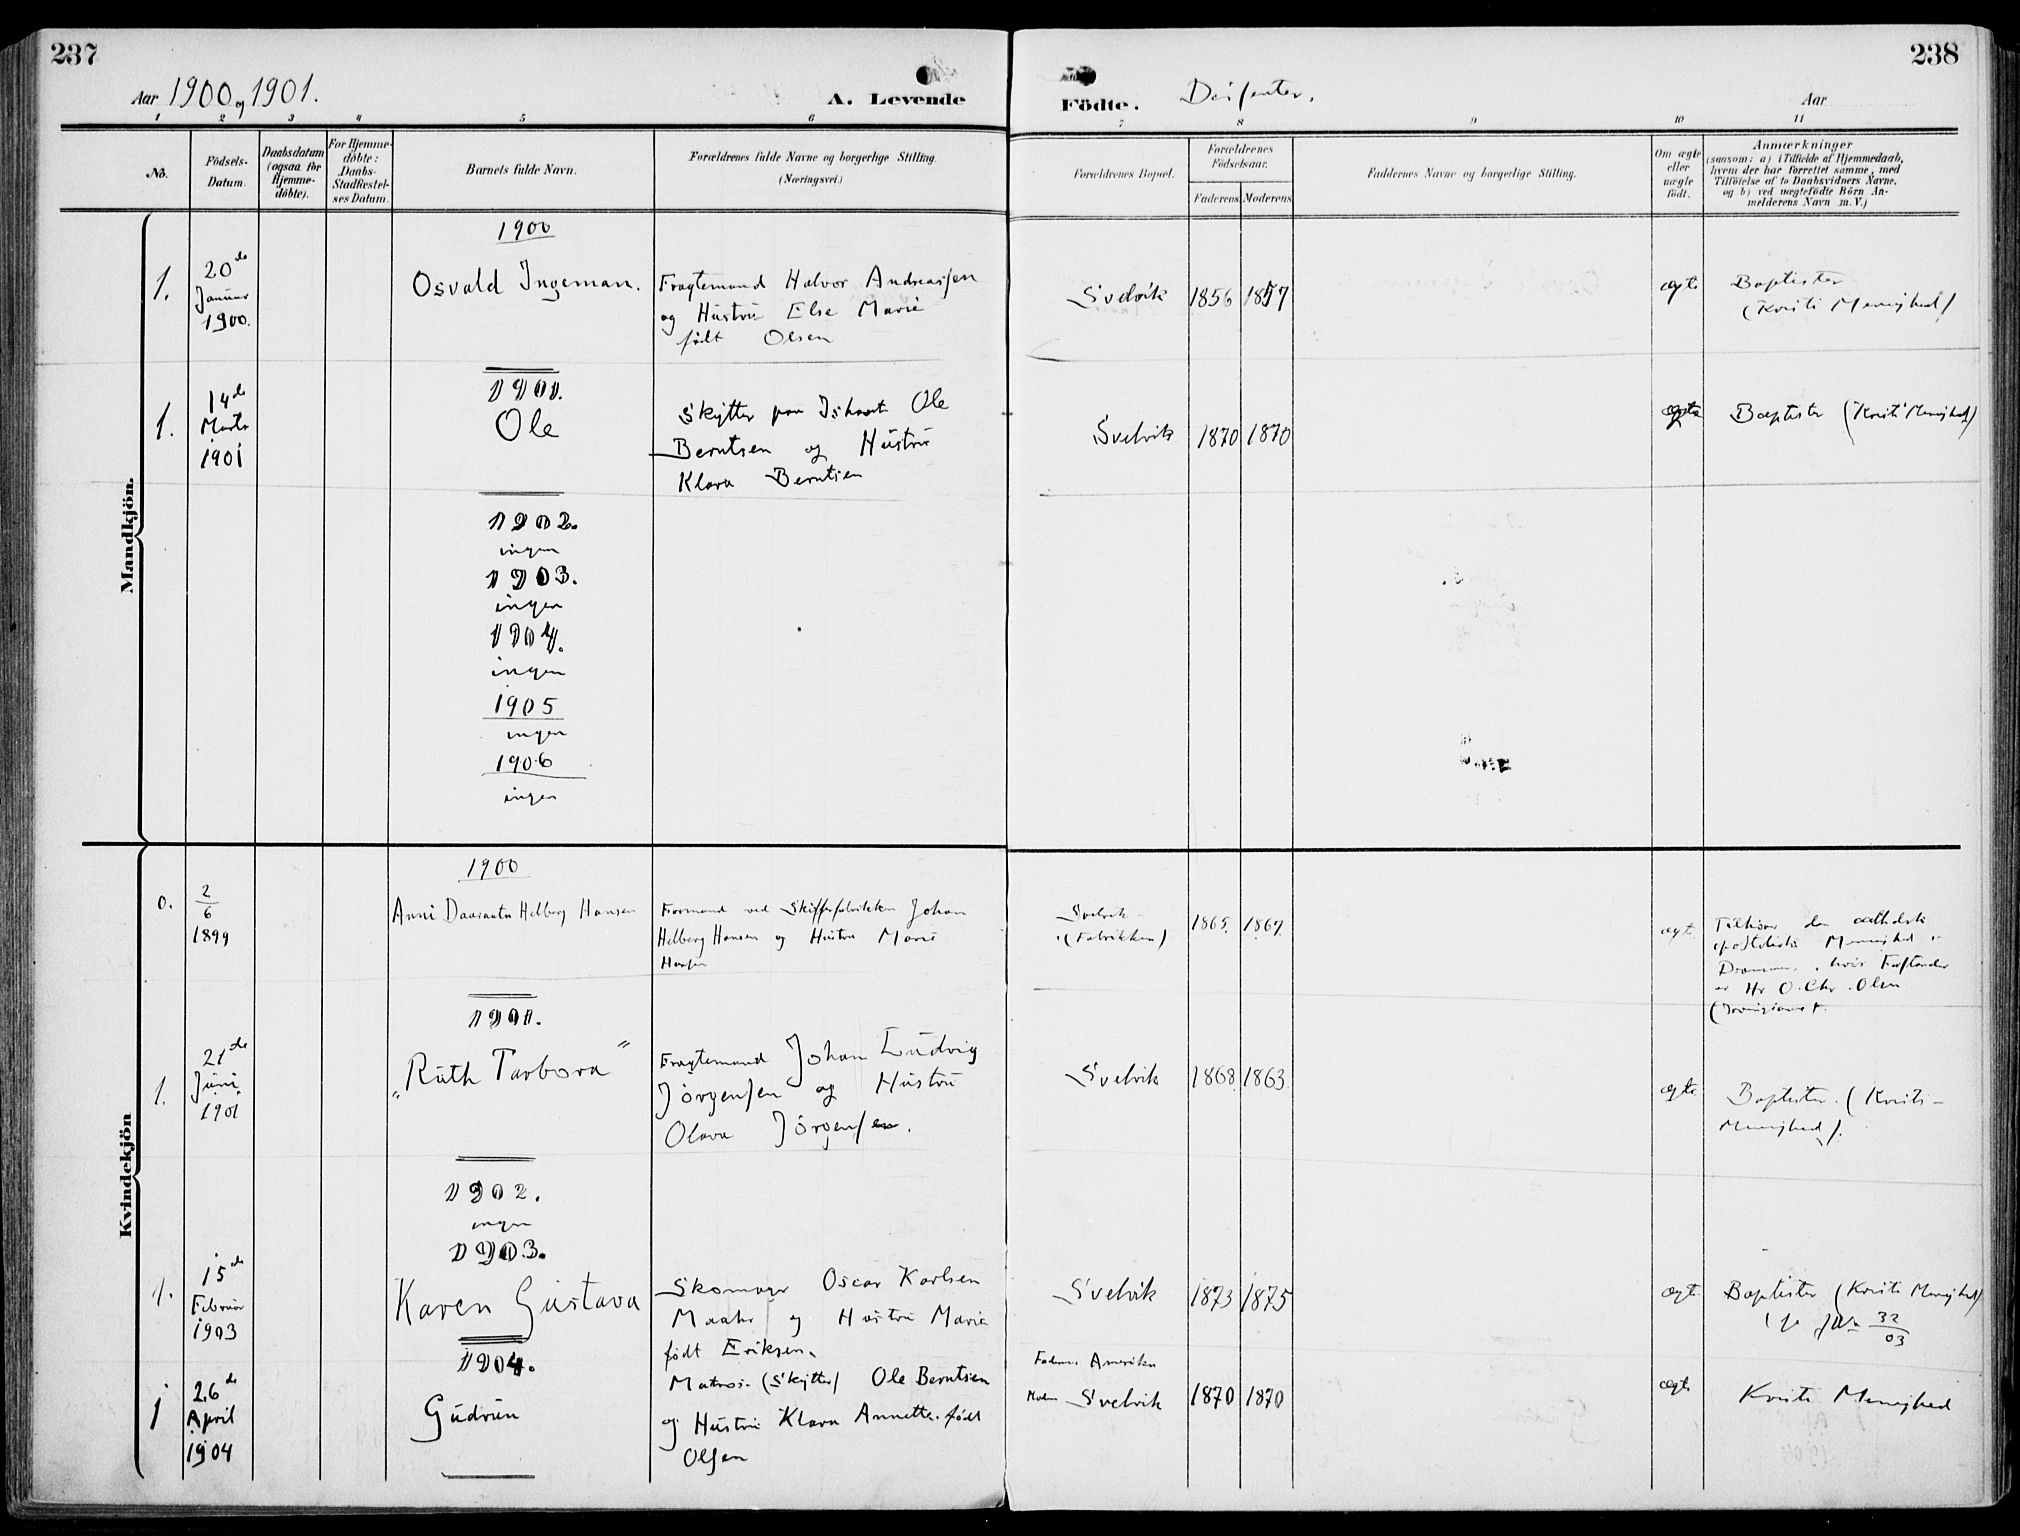 237
238
Aar 1900 og 1901.
A. Levende
Födte.
Aar
1 2 3 4 5 6 7 8 9 10 11
No.
Födsels-
Datum.
Daabsdatum
(ogsaa for
Hjemme-
döbte).
For Hjemme-
döbte:
Daabs-
Stadfæstel-
ses Datum.
Barnets fulde Navn.
Forældrenes fulde Navne og borgerlige Stilling.
(Næringsvei.)
Forældrenes Bopæl.
Forældrenes
Födselsaar.
Faderens. Moderens.
Faddernes Navne og borgerlige Stilling.
Om ægte
eller
uægte
födt.
Anmærkninger
(saasom: a) i Tilfælde af Hjemmedaab,
hvem der har forrettet samme, med
Tilföielse af to Daabsvidners Navne,
og b) ved uægtefödte Börn An-
melderens Navn m. V.)
Mandkjön.
1900
1.
20de
Januar
1900.
Osvald Ingeman.
Fragtemand Halvor Andreassen
og Hustru Else Marie
født Olsen
Svelvik
1856 1857
ægte
Baptister
(Kristi Menighed)
1901.
1.
14de
Marts
1901
Ole
Skytter paa Ishavet Ole
Berntsen og Hustru
Klara Berntsen
Svelvik
1870 1870
ægte
Baptister (Kristi Menighed)
1902.
ingen
1903.
ingen
1904.
ingen
1905
ingen
1906
ingen
Kvindekjön
1900
0.
2
6
1899
Anni Helberg Hansen
Formand ved Johan
Helberg Hansen og Hustru Marie
Hansen
Svelvik
(Fabrikken)
1865. 1867.
ægte
Tilhører den
apostoliske Menighed i
Drammen, hvis Forstander
er Hr O. Chr. Olsen
1901.
1.
21de
Juni
1901
"Ruth Tarbora"
Fragtemand Johan Ludvig
Jörgensen og Hustru
Olava Jörgensen.
Svelvik
1868 1863
ægte
Baptister. (Kristi-
Menighed).
1902.
ingen
1903.
1.
15de
Februar
1903
Karen Gustava
Skomager Oscar Karlsen
og Hustru Marie
født Eriksen.
Svelvik
1873 1875
ægte
Baptister (Kristi Menighed)
32
03
1904.
1
26de
April
1904
Gudrun
Matros (Skytter) Ole Berntsen
og Hustru Klara Annette født
Olsen
Faderen Amerika
Moderen Svelvik
1870 1870
ægte
Kristi Menighed